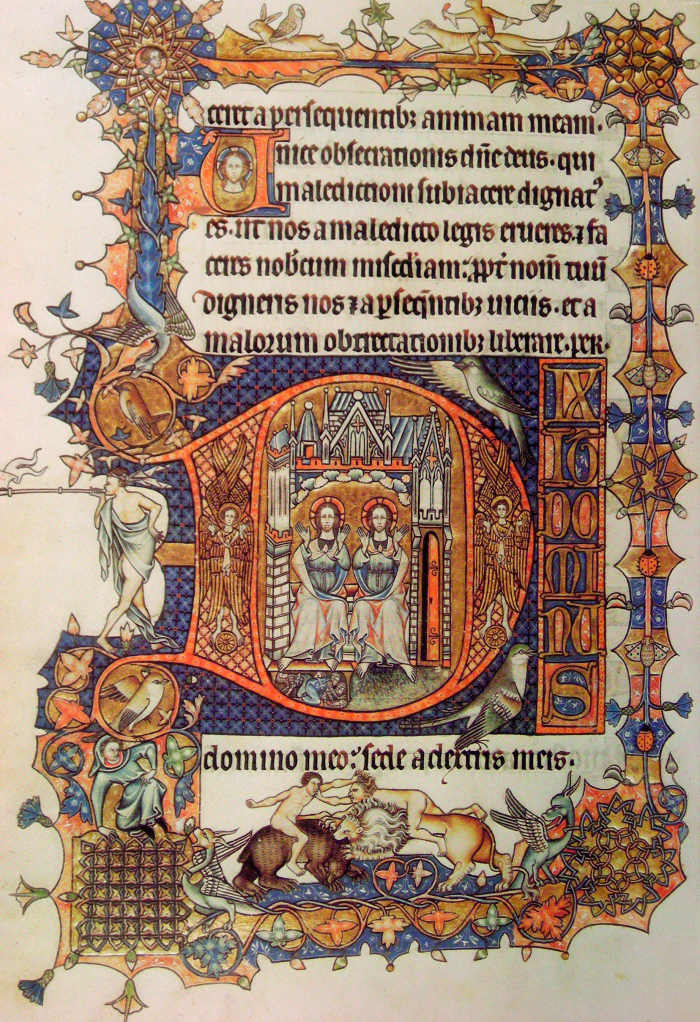 ceret a persequentibꝫ animam meam.
Unice obsecrationis dn̄e deus. qui
maledictioni subiacere dignatꝰ
es. ut nos a maledicto legis erueres. ⁊ fa
ceres nobcum misc̄diam: ꝓpt̄ nom̄ tuū
digneris nos ⁊ a ꝑseq̄ntibꝫ uiciis. et a
malorum obtrectationibꝫ liberare. per.
D
IX
IT
DO
MI
NU
S
domino meo: sede a dextris meis.